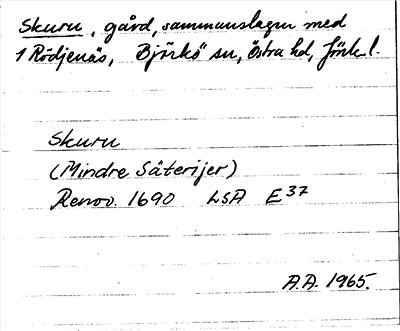 Skuru, gård, sammanslagen med
1 Rödjenäs, Björkö sn, Östra hd, Jönk. l.
Skuru
(Mindre Säterijer)
Renov. 1690 LSA E37
A.A. 1965.